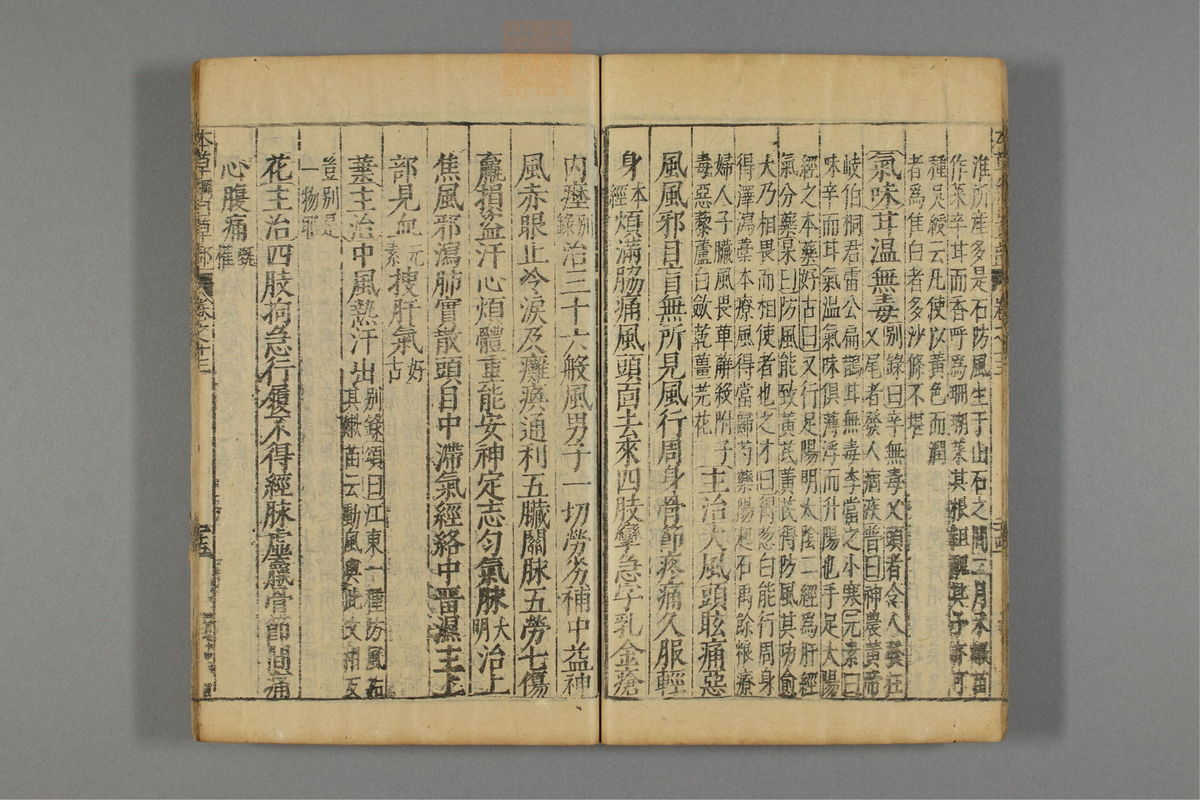 淮所產多是石防風生于山石之間二月采嫩苗
作菜辛甘而香呼為珊瑚菜其根粗醜其子亦可
種吳綬云凡使以黃色而潤
者為佳白者多沙條不堪
氣味甘溫無毒別錄曰辛無毒叉頭者令人發狂
叉尾者發人痼疾普曰神農黃帝
岐伯桐君雷公扁鵲甘無毒李當之小寒元素曰
味辛而甘氣溫氣味俱薄浮而升陽也手足太陽
經之本藥好古曰又行足陽明太陰二經為肝經
氣分藥杲曰防風能致黃芪黃芪得防風其功愈
大乃相畏而相使者也之才曰得葱白能行周身
得澤瀉藁本療風得當歸芍藥陽起石禹餘糧療
婦人子臟風畏萆薢殺附子
毒惡藜蘆白斂乾薑芫花
主治大風頭眩痛惡
風風邪目盲無所見風行周身骨節疼痛久服輕
身本經煩滿脇痛風頭面去來四肢攣急字乳金瘡
內痙別錄治三十六般風男子一切勞劣補中益神
風赤眼止冷淚及癱瘓通利五臟關脉五勞七傷
羸損盜汗心煩體重能安神定志勻氣脉大明治上
焦風邪瀉肺實散頭目中滯氣經絡中畱濕主上
部見血元素搜肝氣好古
葉主治中風熱汗出別錄頌曰江東一種防風茹
其嫩苗云動風與此文相反
豈別是
一物耶
花主治四肢拘急行履不得經脉虛羸骨節間痛
心腹痛甄權